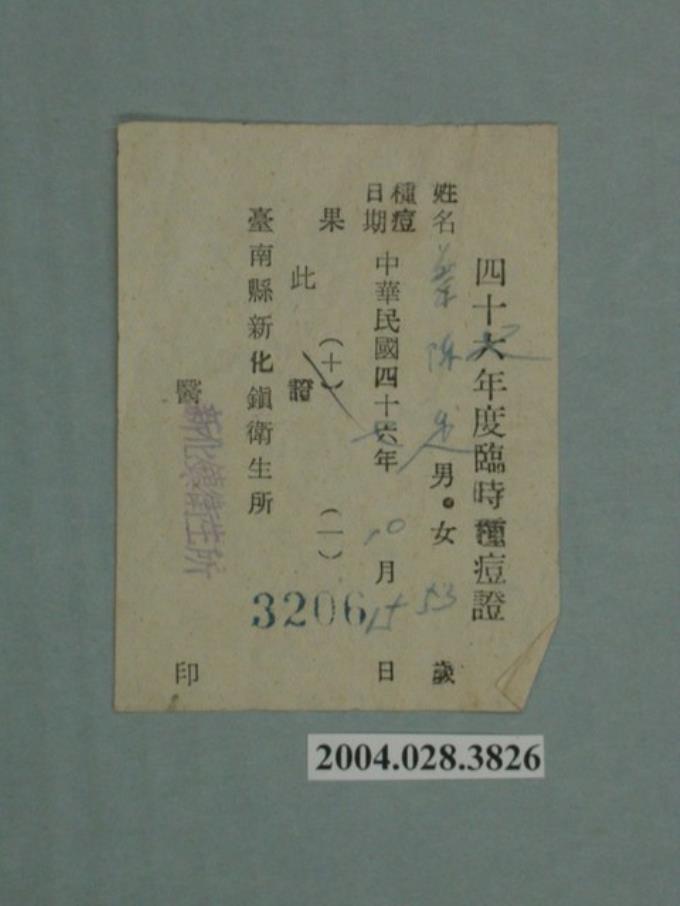 四十六年度臨時種痘證
姓名 葉陳 男。女 53 歲
種痘日期 中華民國四十六年 10 月 15 日
果 (十) (一)
此證
臺南縣新化鎮衛生所
醫 印
新化鎮衛生所
3206
2004.028.3826